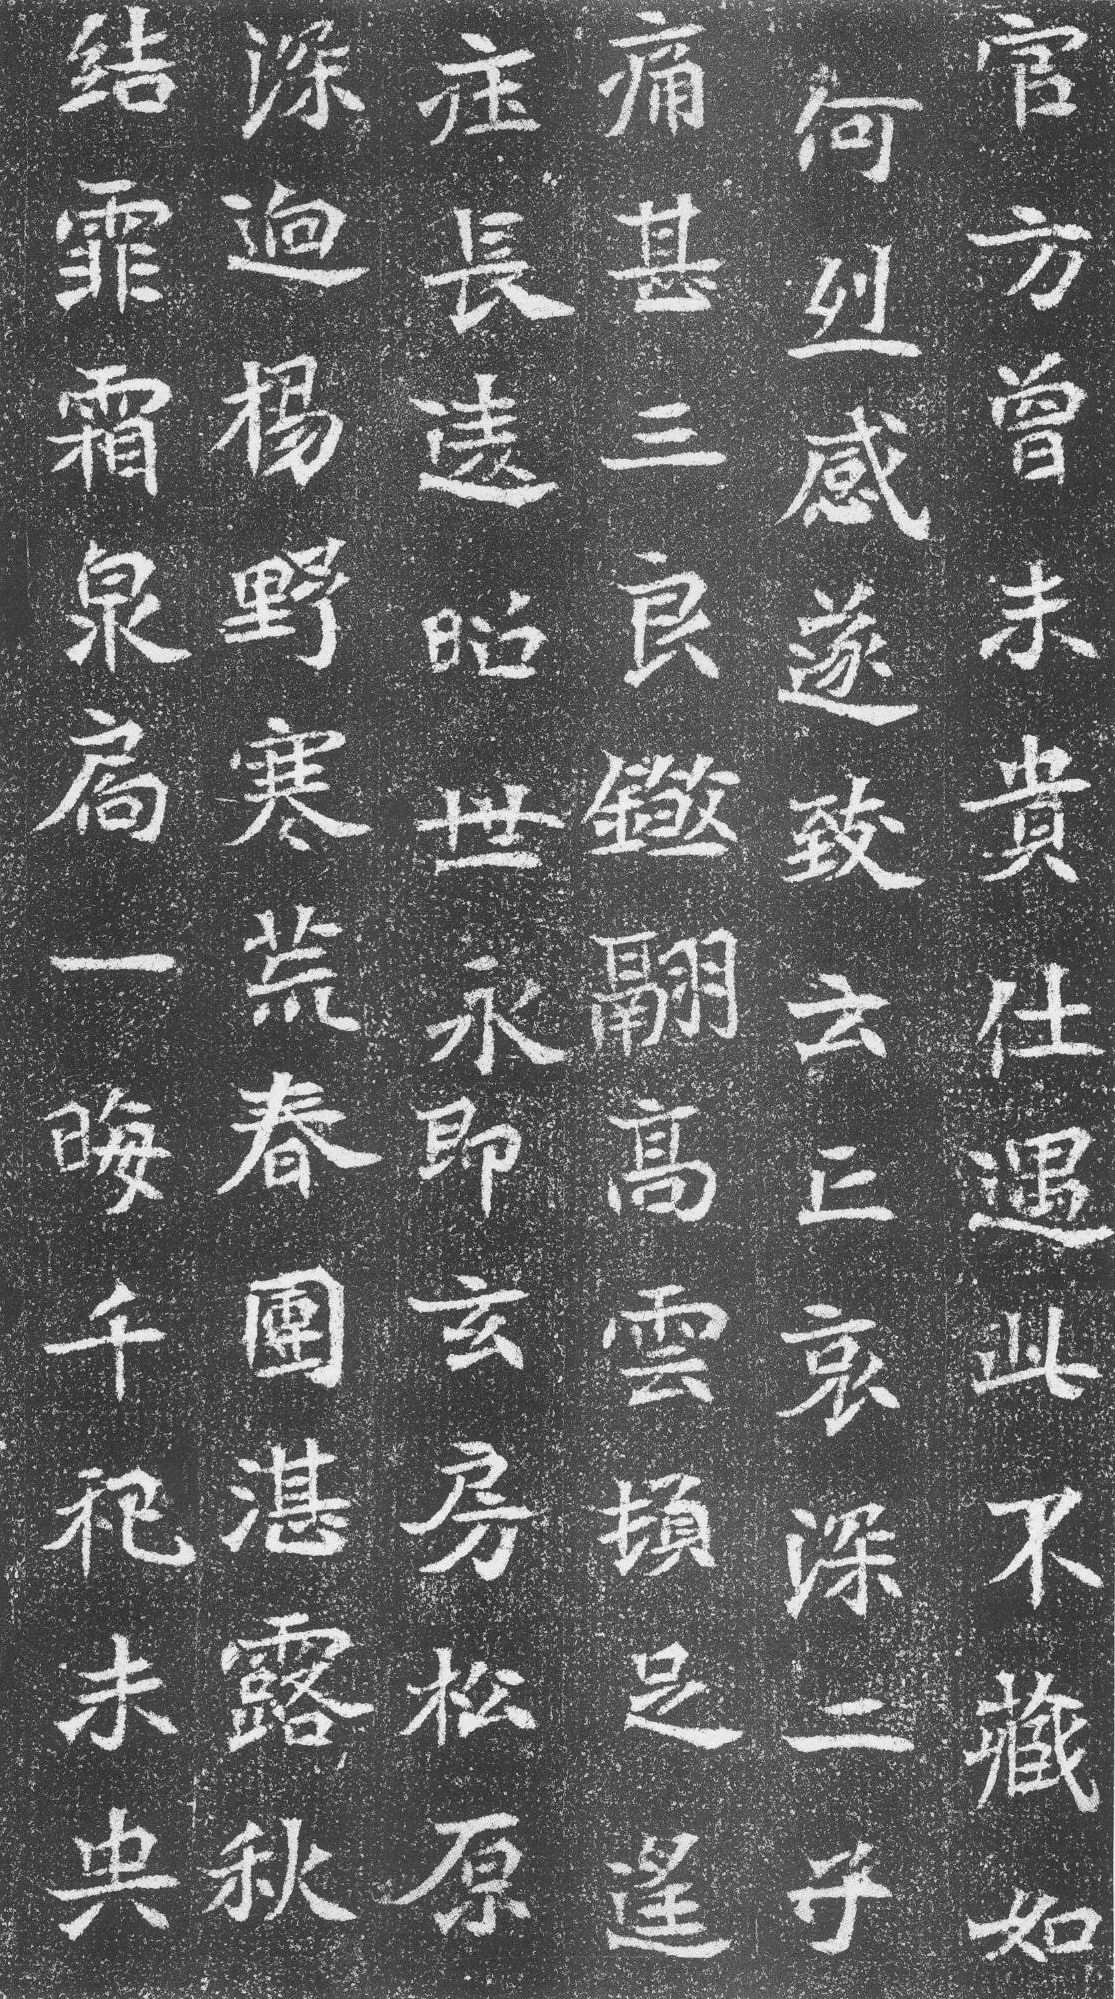 官方曾未貴仕遇此不藏如
何烈感遂致玄正哀深二守
痛甚三良鑒翮高雲頓足遥
庄長遠昭世永即玄房松原
深迥楊野寒荒春團湛露秋
結霏霜泉扃一晦千祀未央